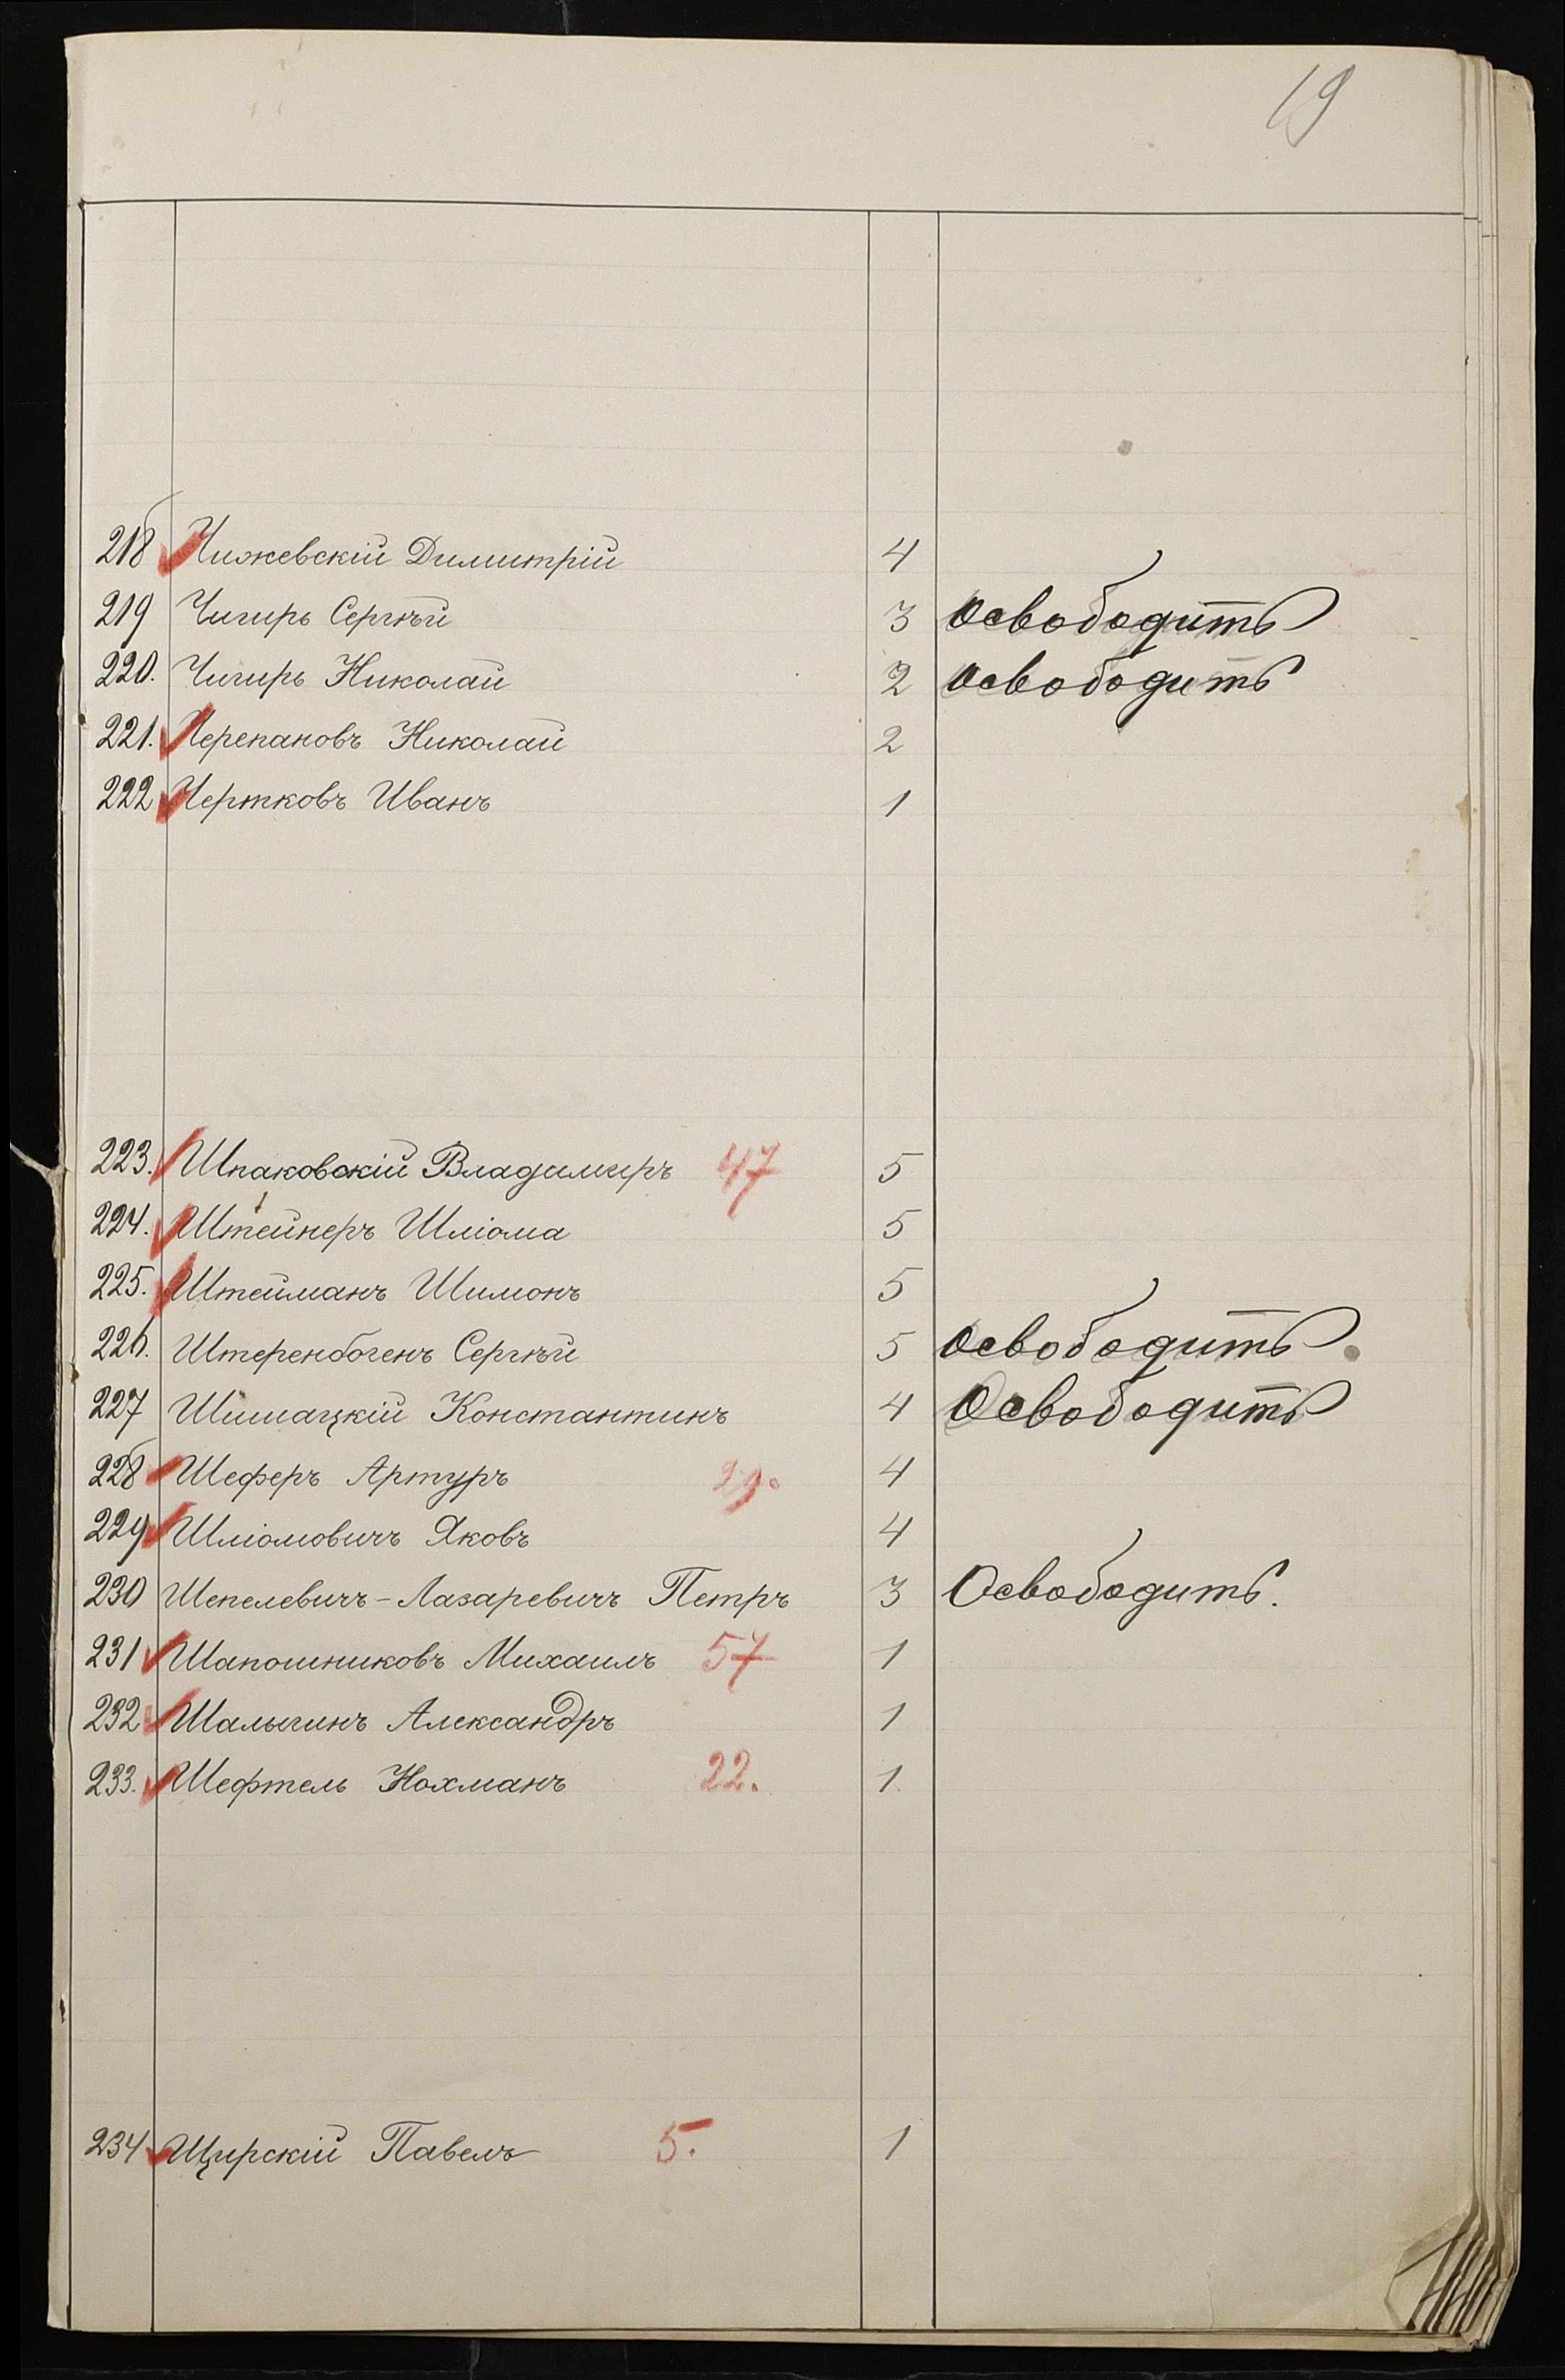 19
218 Чижевскій Димитрій 4
219 Чигирь Сергѣй 3 Освободить
220. Чигирь Николай 2 Освободить
221. Черепановъ Николай 2
222 Чертковъ Иванъ 1
223. Шпаковскій Владимиръ 47 5
224. Штейнеръ Шліома 5
225. Штейманъ Шимонъ 5
226. Штеренбогенъ Сергѣй 5 Освободить.
227 Шимацкій Константинъ 4 Освободить
228 Шеферъ Артуръ 29. 4
229 Шліомовичъ Яковъ 4
230 Шепелевичъ-Лазаревичъ Петръ 3 Освободить.
231 Шапошниковъ Михаилъ 57 1
232 Шалыгинъ Александръ 1
233. Шефтель Нохманъ 22. 1
234 Щирскій Павелъ 5. 1